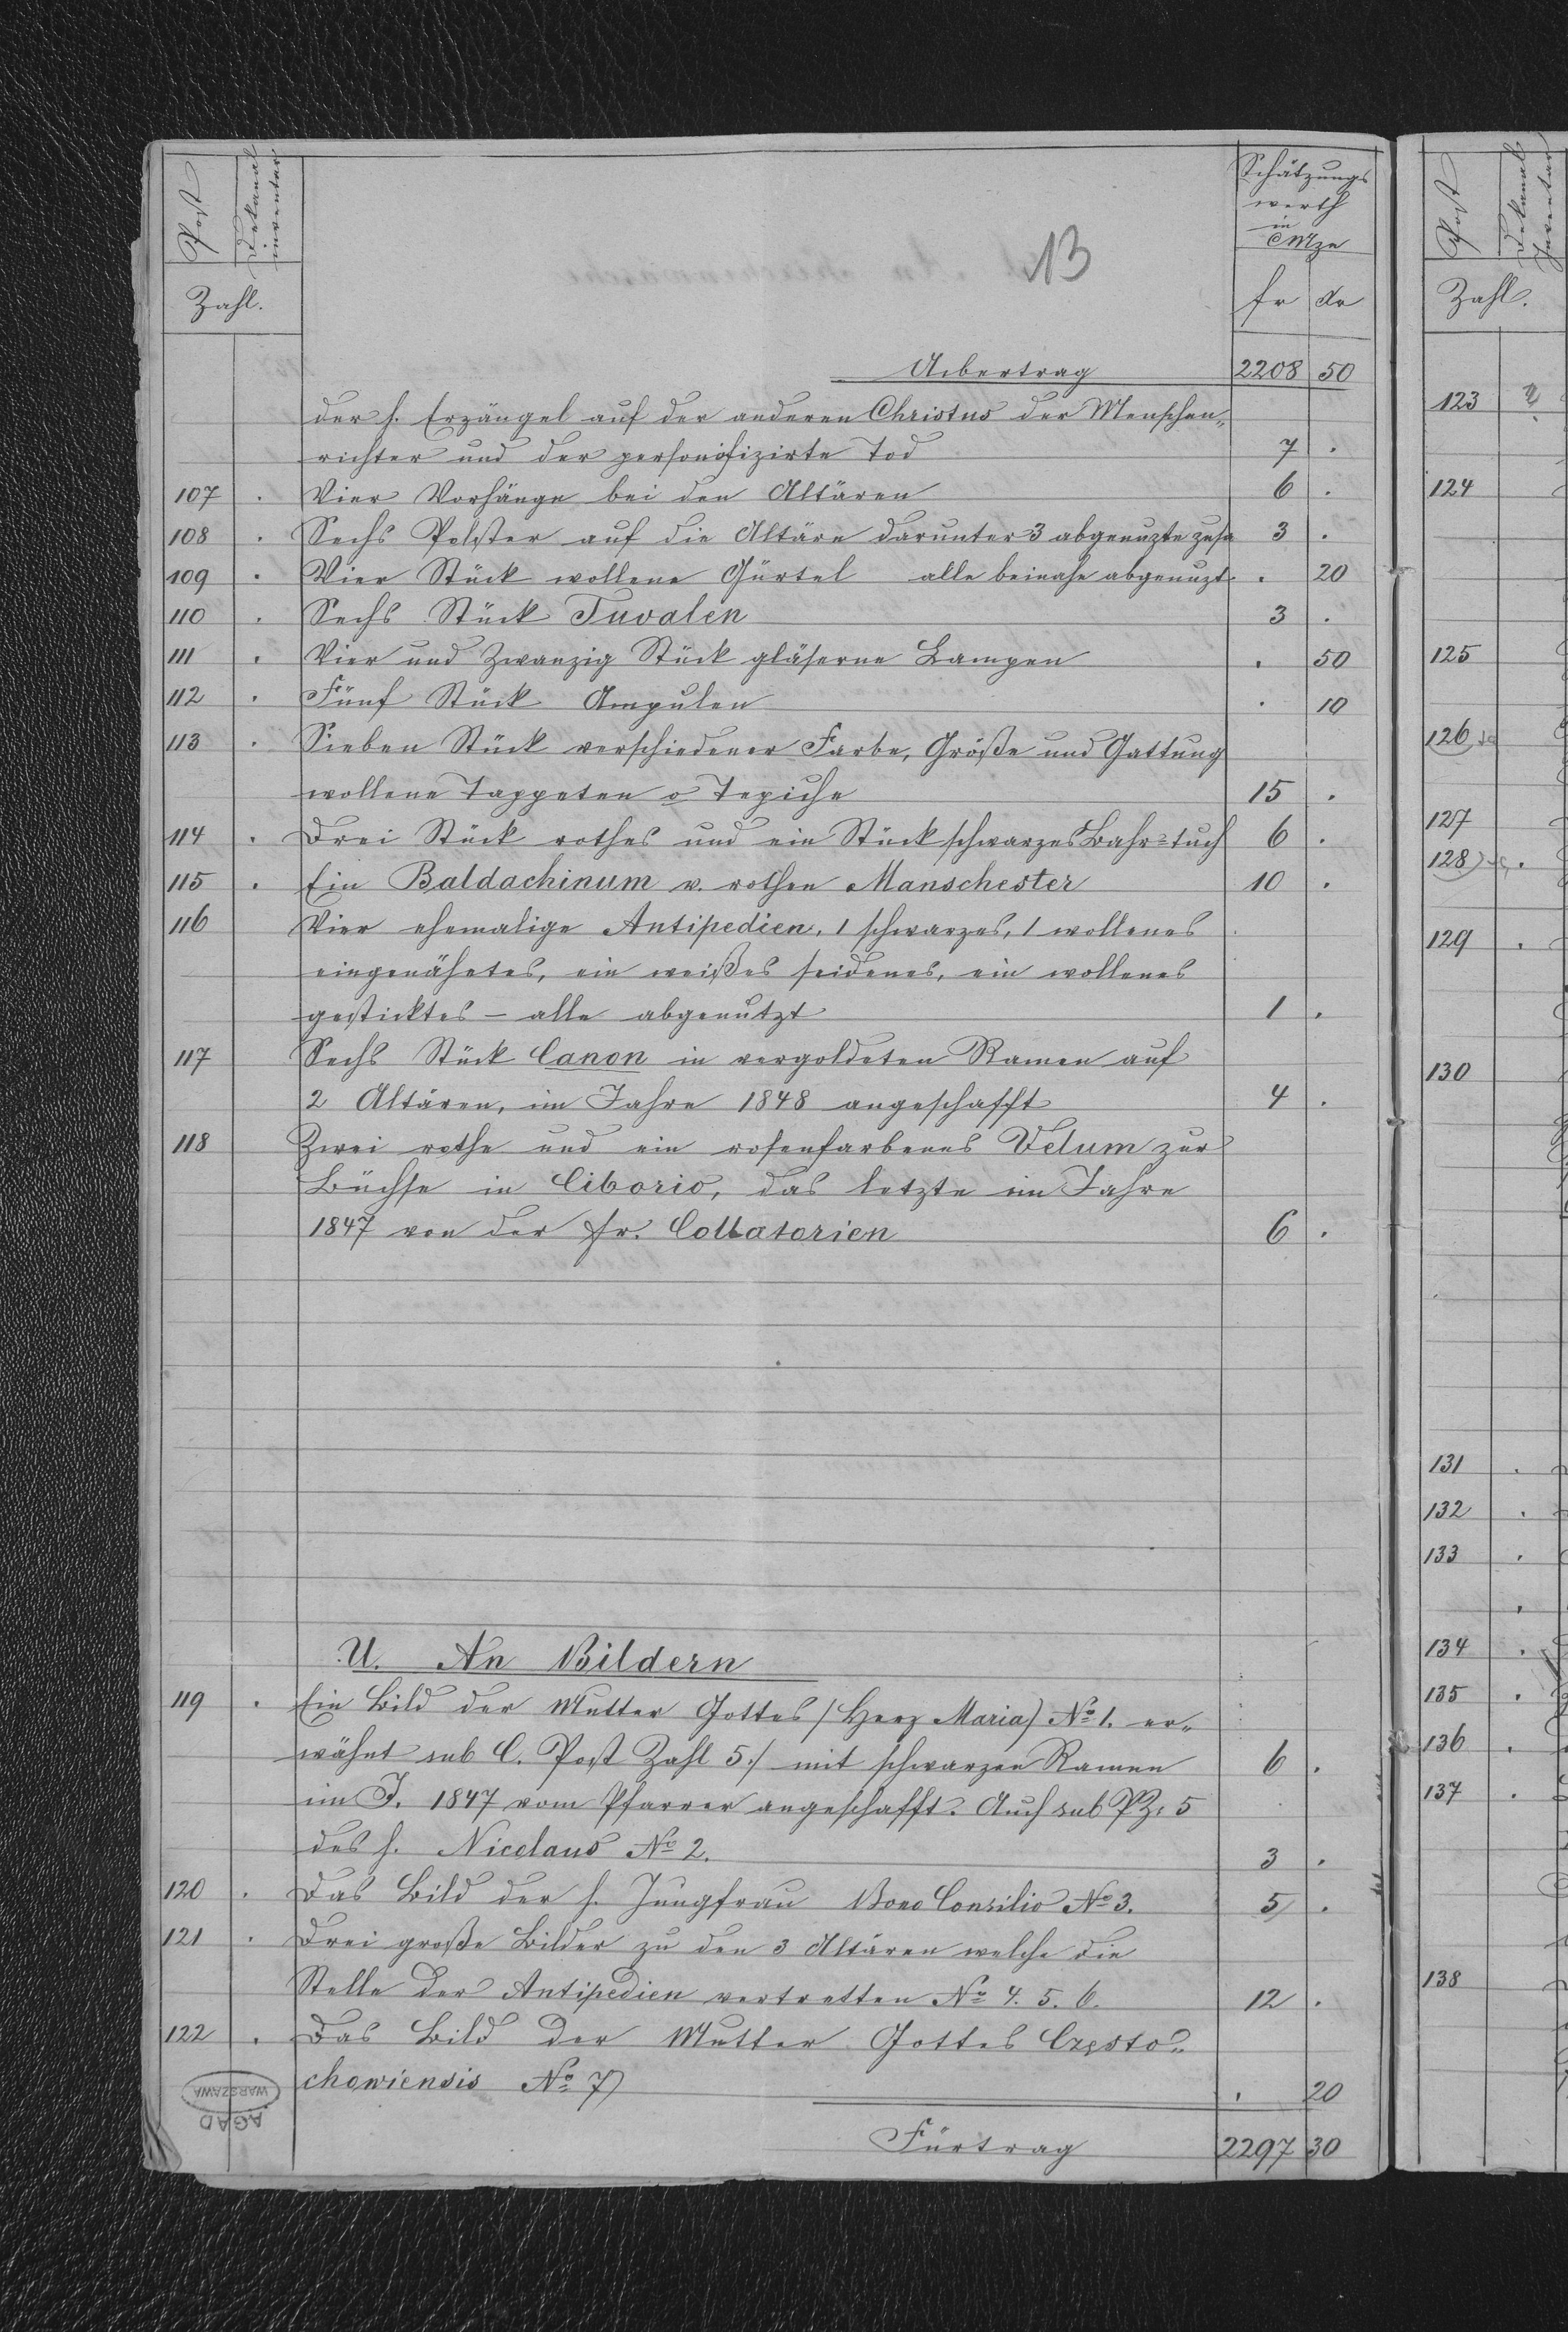 Post
Dekanal
inventar
Zahl.
Schätzungs
werth
in
CMze
fr xr
13
Uibertrag 2208 50
der h. Erzängel auf der anderen Christus der Menschen„
richter und der personifizirte Tod 7 .
107 . Vier Vorhänge bei den Altären 6 .
108 . Sechs Polster auf die Altäre darunter 3 abgenuzte zusa 3 .
109 . Vier Stück wollene Gürtel alle beinahe abgenuzt . 20
110 . Sechs Stück Tuvalen 3 .
111 . Vier und Zwanzig Stück gläserne Lampen . 50
112 . Fünf Stück Ampulen . 10
113 . Sieben Stück verschiedener Farbe, Größe und Gattung
wollene Tappeten o Tepiche 15 .
114 . Drei Stück rothes und ein Stück schwarzes Bahr=tuch 6 .
115 . Ein Baldachinum v. rothen Manschester 10 .
116 Vier ehemalige Antipedien, 1 schwarzes, 1 wollenes
eingenähetes, ein weißes seidenes, ein wollenes
gesticktes – alle abgenutzt 1 .
117 Sechs Stück Canon in vergoldeten Ramen auf
2 Altären, im Jahre 1848 angeschafft 4 .
118 Zwei rothe und ein rosenfarbenes Velum zur
Büchse in Ciborio, das letzte im Jahre
1847 von der Fr. Collatorien 6 .
U. An Bildern
119 . Ein Bild der Mutter Gottes /Herz Maria/ No 1. er„
wähnt sub C. Post Zahl 5./ mit schwarzen Ramen 6 .
im J. 1847 vom Pfarrer angeschafft. Auch sub PZ: 5
des h. Nicolaus No 2. 3 .
120 . Das Bild der h. Jungfrau Bono Consilio No 3. 5 .
121 . Drei große Bilder zu den 3 Altären welche die
Stelle der Antipedien vertretten No 4. 5. 6. 12 .
122 . Das Bild der Mutter Gottes Często„
chowiensis No 7 . 20
Fürtrag 2297 30
AGAD
WARSZAWA
Post
Dekanal
Inventar
Zahl.
123
124
125
126
127
128
129
130
131
132
133
134
135
136
137
138